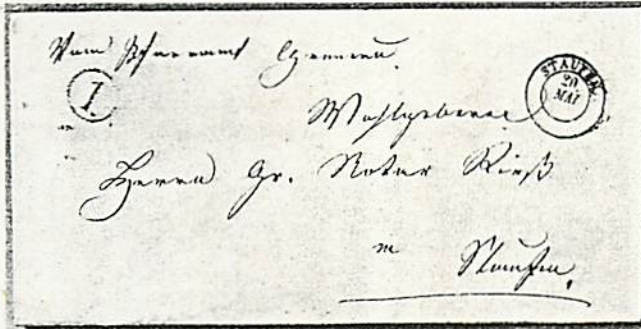 Vom Pfarramt Grunern.
STAUFEN
20
MAI
Wohlgeboren
Herrn Gr. Notar Rieß
in Staufen.